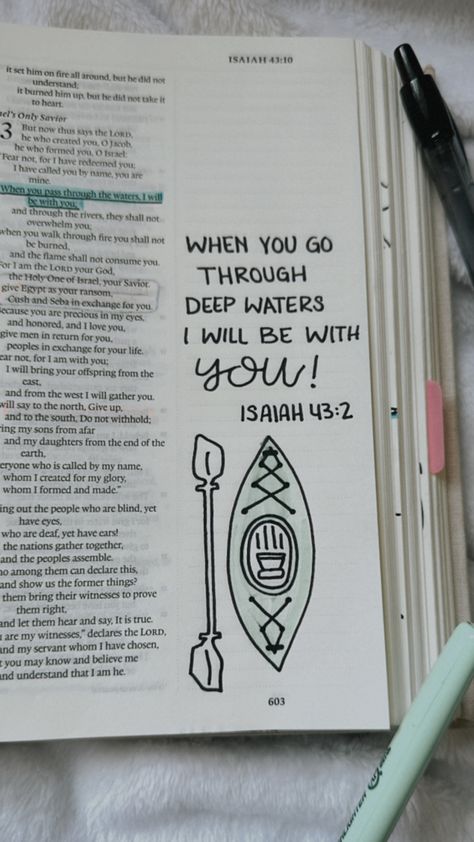 ISAIAH 43:10
it set him on fire all around, but he did not
understand;
it burned him up, but he did not take it
to heart.
el's Only Savior
3 But now thus says the LORD,
he who created you, O Jacob,
he who formed you, O Israel:
"Fear not, for I have redeemed you;
I have called you by name, you are
mine.
When you pass through the waters, I will
be with you;
and through the rivers, they shall not
overwhelm you;
when you walk through fire you shall not
be burned,
and the flame shall not consume you.
For I am the LORD your God,
the Holy One of Israel, your Savior.
give Egypt as your ransom,
Cush and Seba in exchange for you.
Because you are precious in my eyes,
and honored, and I love you,
give men in return for you,
peoples in exchange for your life.
ear not, for I am with you;
I will bring your offspring from the
east,
and from the west I will gather you.
will say to the north, Give up,
and to the south, Do not withhold;
ring my sons from afar
and my daughters from the end of the
earth,
eryone who is called by my name,
whom I created for my glory,
whom I formed and made."
ing out the people who are blind, yet
have eyes,
who are deaf, yet have ears!
the nations gather together,
and the peoples assemble.
ho among them can declare this,
and show us the former things?
them bring their witnesses to prove
them right,
and let them hear and say, It is true.
u are my witnesses," declares the LORD,
and my servant whom I have chosen,
t you may know and believe me
and understand that I am he.
WHEN YOU GO
THROUGH
DEEP WATERS
I WILL BE WITH
YOU!
ISAIAH 43:2
603